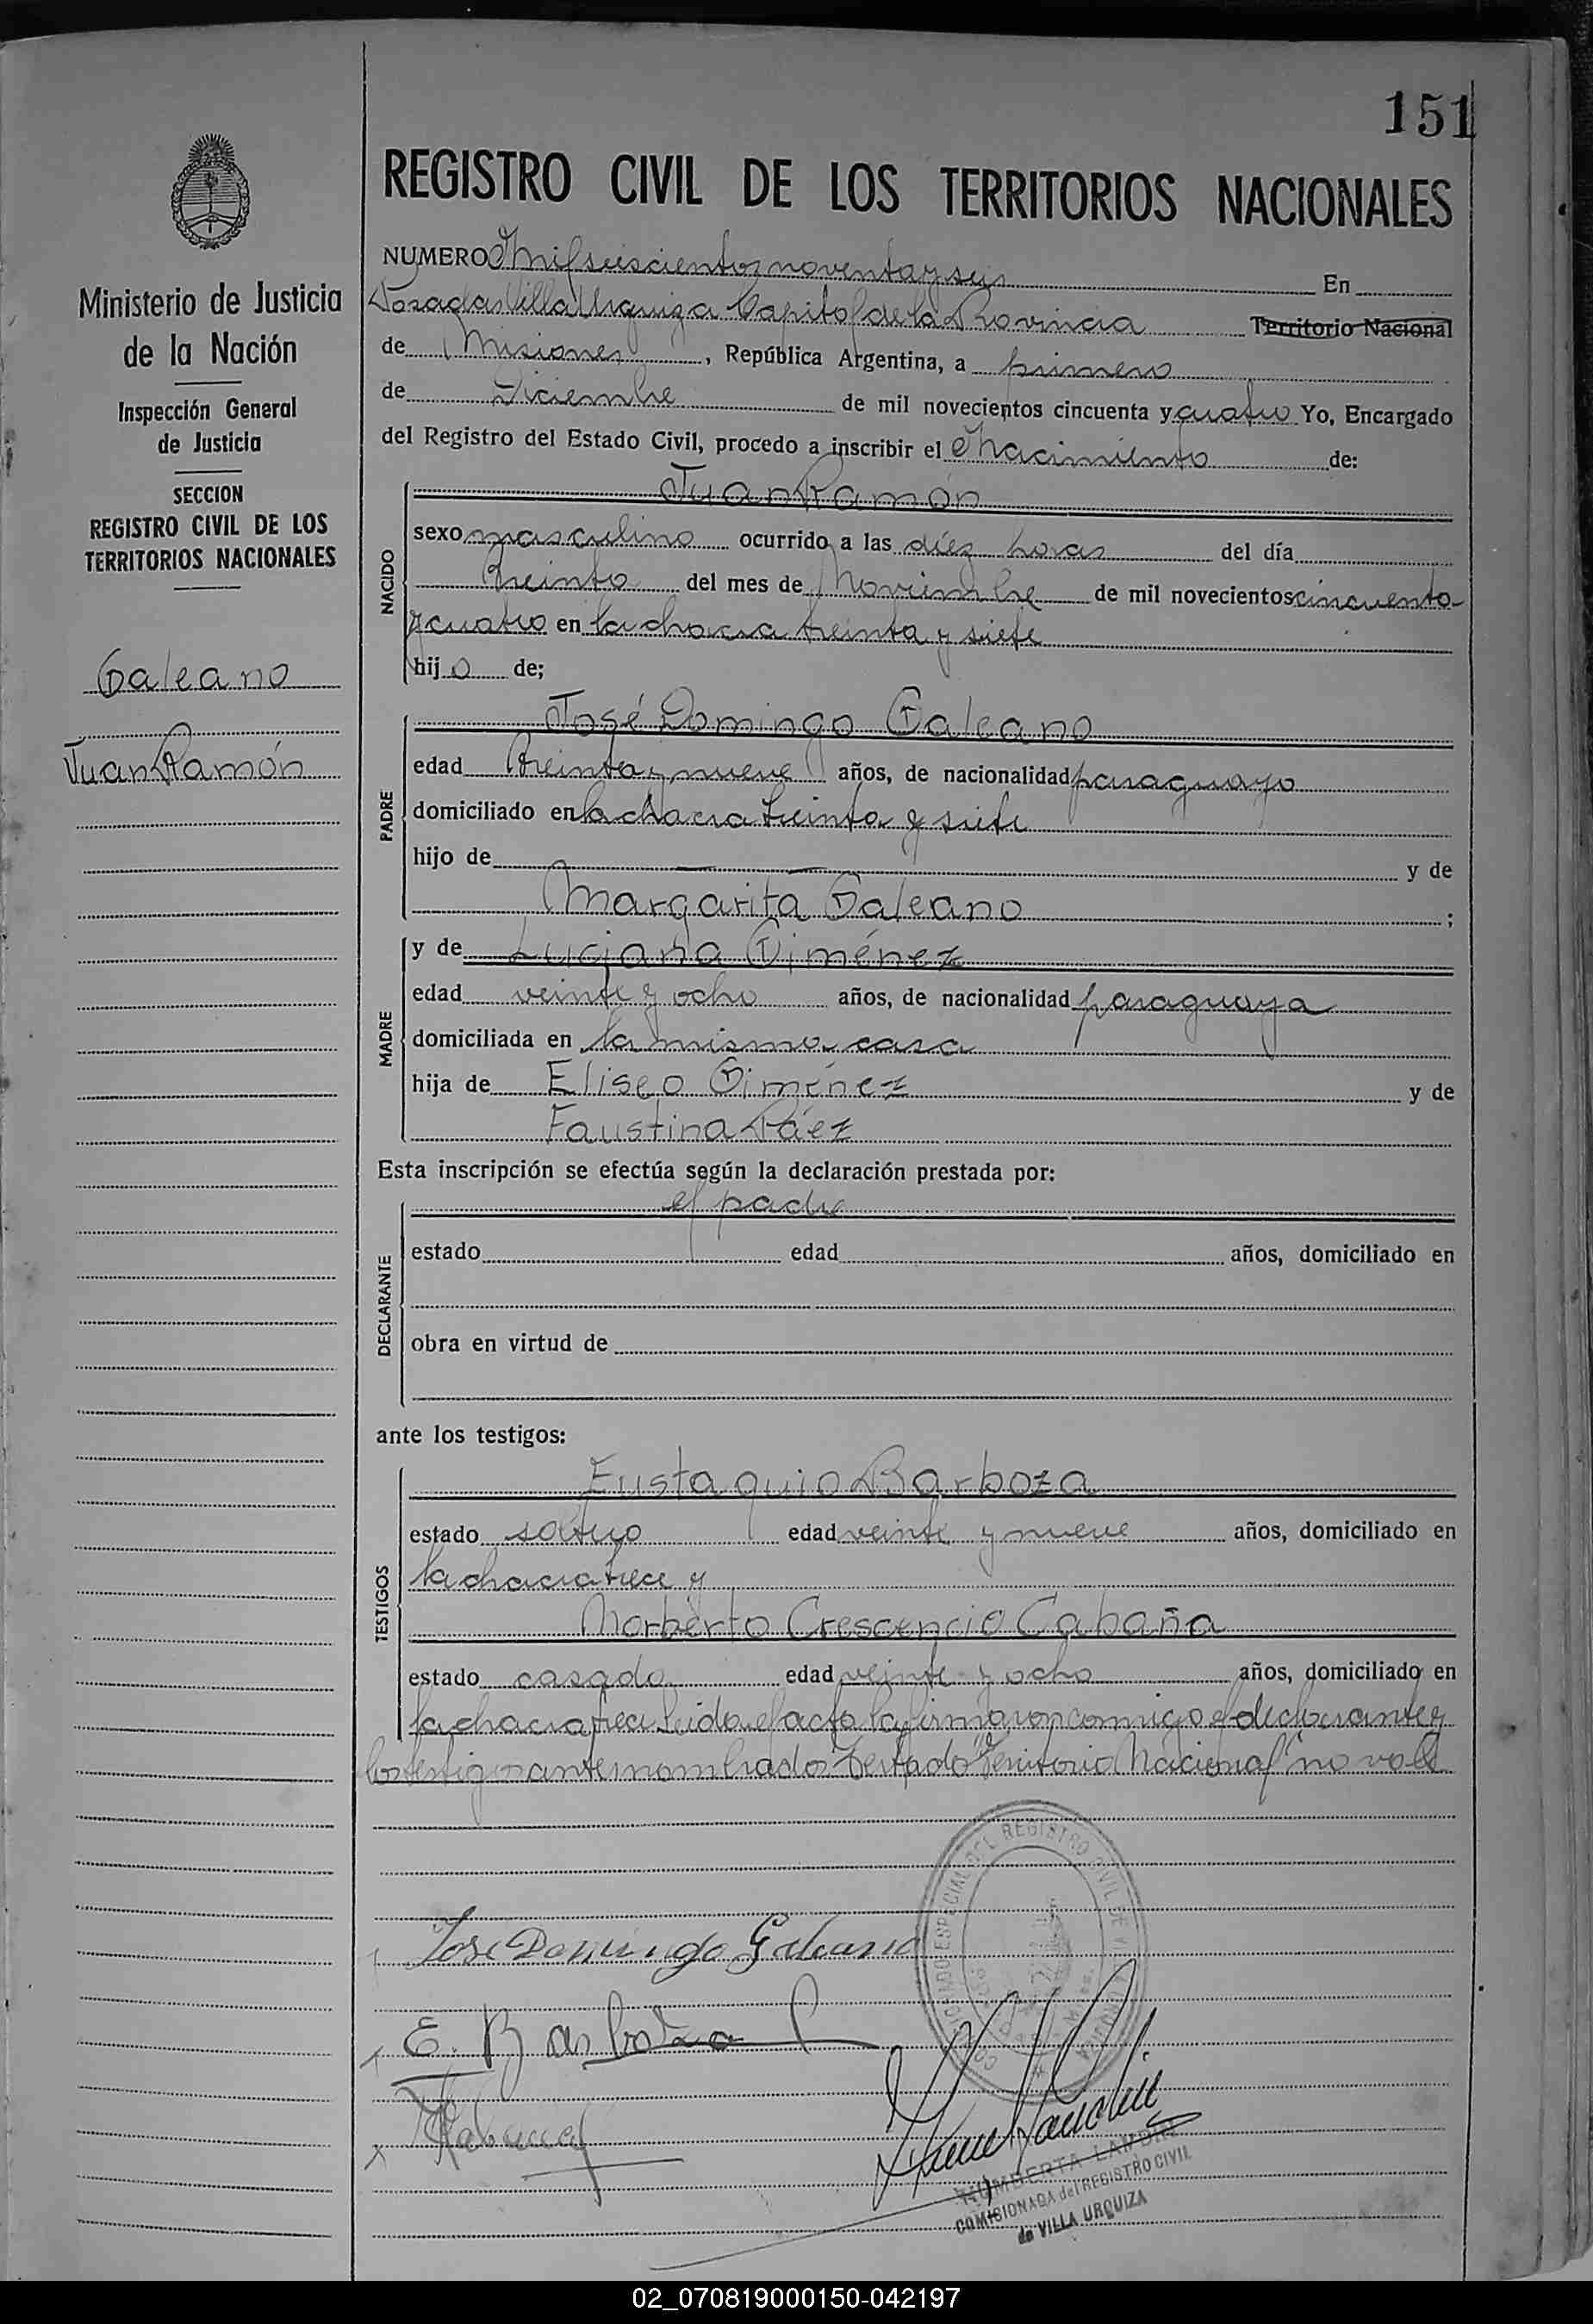 151
REGISTRO CIVIL DE LOS TERRITORIOS NACIONALES
Ministerio de Justicia
de la Nación
Inspección General
de Justicia
SECCION
REGISTRO CIVIL DE LOS
TERRITORIOS NACIONALES
Galeano
Juan Ramón
NUMERO Mil seiscientos noventa y seis En
Posadas Villa Urquiza Capital de la Provincia Territorio Nacional
de Misiones, República Argentina, a primero
de Diciembre de mil novecientos cincuenta y cuatro Yo, Encargado
del Registro del Estado Civil, procedo a inscribir el Nacimiento de:
NACIDO
Juan Ramón
sexo masculino ocurrido a las diez horas del día
treinta del mes de Noviembre de mil novecientos cincuenta
y cuatro en la chacra treinta y siete
hijo de;
PADRE
José Domingo Galeano
edad treinta y nueve años, de nacionalidad paraguayo
domiciliado en la chacra treinta y siete
hijo de y de
Margarita Galeano;
MADRE
y de Luciana Giménez
edad veinte y ocho años, de nacionalidad paraguaya
domiciliada en la misma casa
hija de Eliseo Giménez y de
Faustina Páez
Esta inscripción se efectúa según la declaración prestada por:
DECLARANTE
el padre
estado edad años, domiciliado en
obra en virtud de
ante los testigos:
TESTIGOS
Eustaquio Barboza
estado soltero edad veinte y nueve años, domiciliado en
la chacra trece y
Norberto Crescencio Cabaña
estado casado edad veinte y ocho años, domiciliado en
la chacra trece Leida el acta la firmaron conmigo el declarante y
los testigos antes nombrados Testado "Territorio Nacional" no vale
José Domingo Galeano
E. Barboza
REGISTRO CIVIL DE
COMISIONADA del REGISTRO CIVIL
de VILLA URQUIZA
02_070819000150-042197